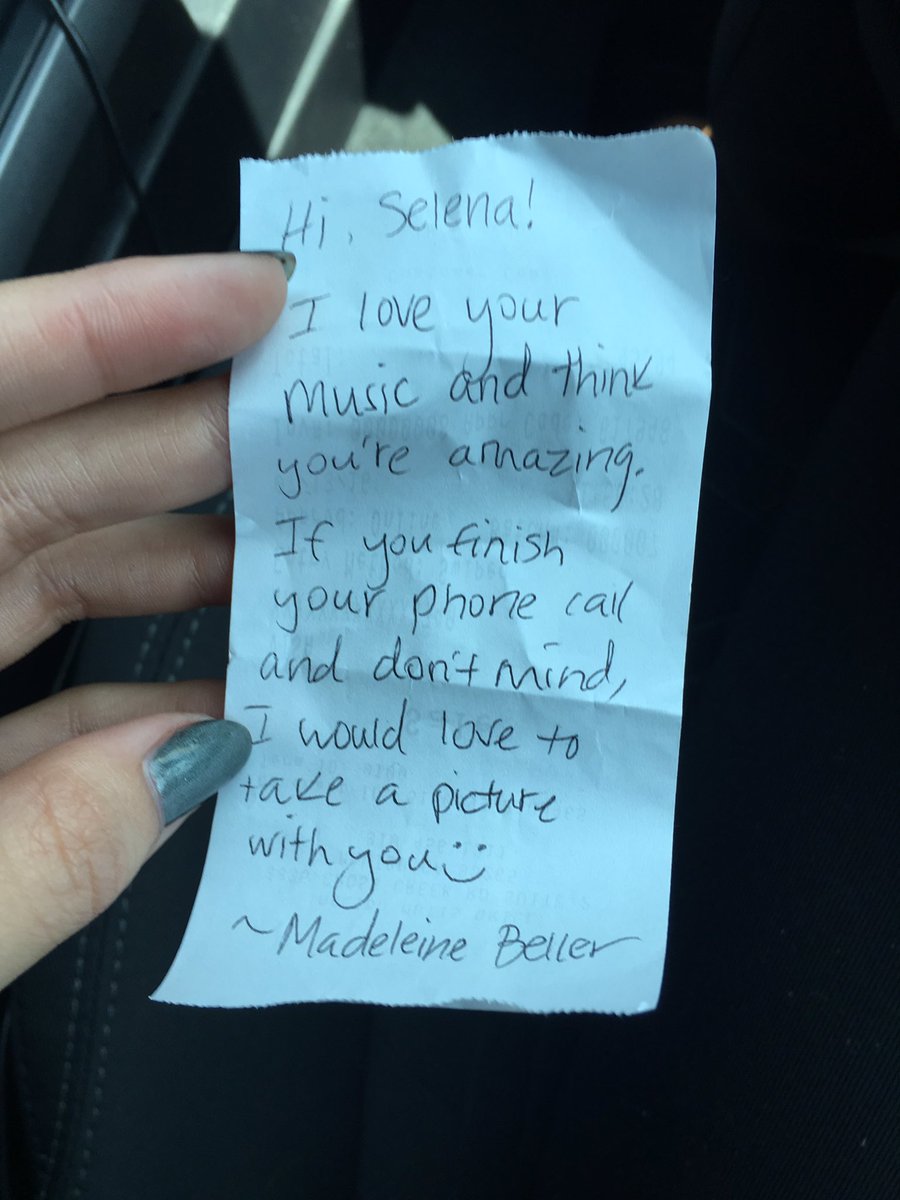 Hi, Selena!
I love your
music and think
you're amazing.
If you finish
your phone call
and don't mind,
I would love to
take a picture
with you :)
~Madeleine Beller